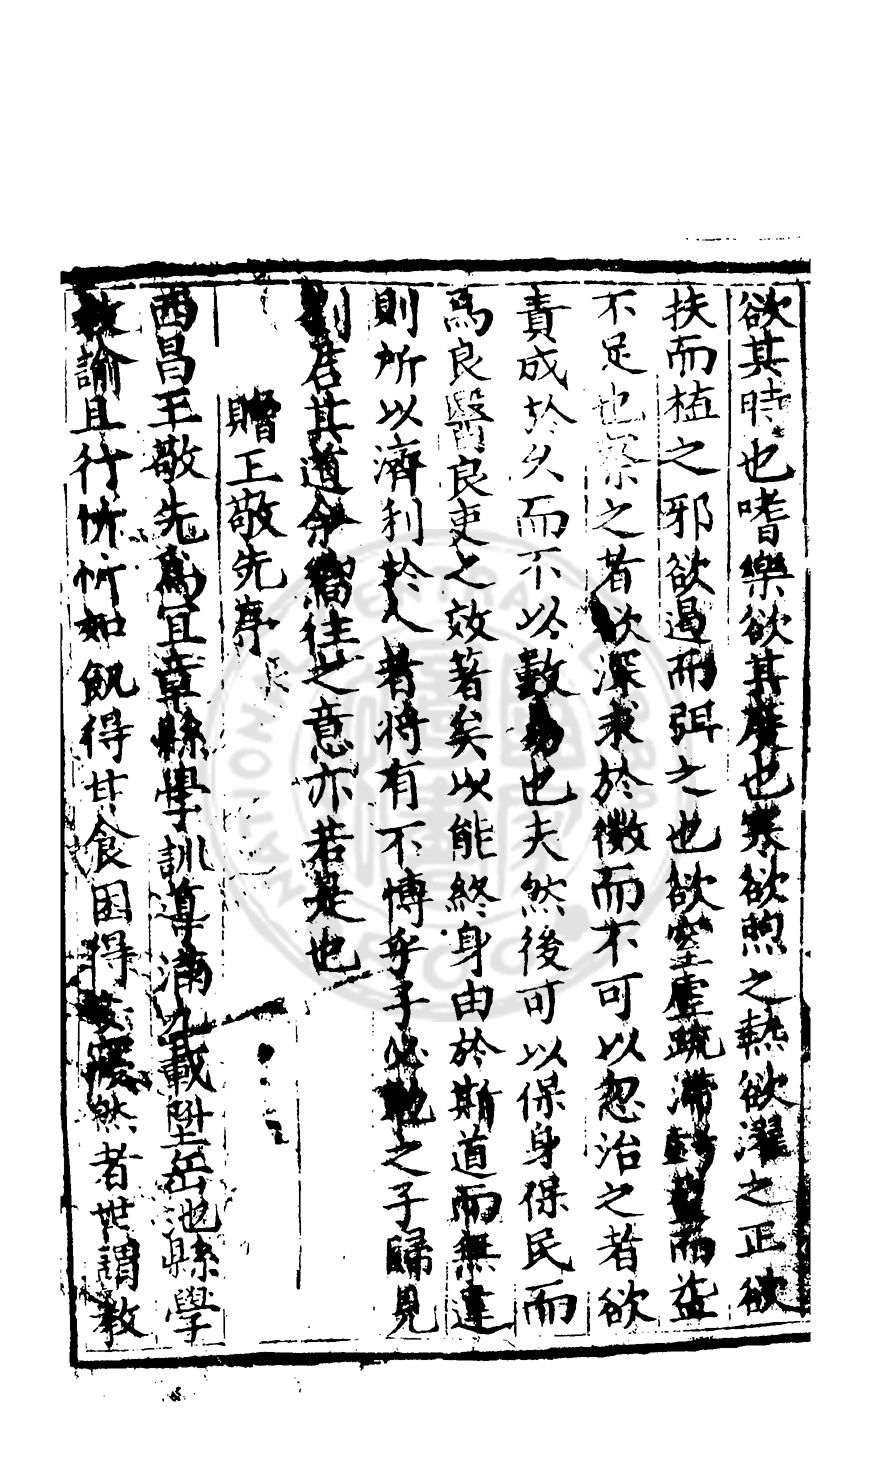 欲其時也嗜樂欲其廉也寒欲煦之熱欲濯之正欲
扶而植之邪欲遏而弭之也欲窒虛疏滯而益
不足也察之者欲深求於微而不可以忽治之者欲
責成於久而不以數易也夫然後可以保身保民而
為良醫良吏之效著矣以能終身由於斯道而無違
則所以濟利於人者將有不愽乎子必勉之子歸見
劉君其道余嚮往之意亦若是也
贈王敬先序
西昌王敬先為宜章縣學訓導滿九載陞岳池縣學
教諭且行忻忻如飢得甘食困得安寢然者世謂教